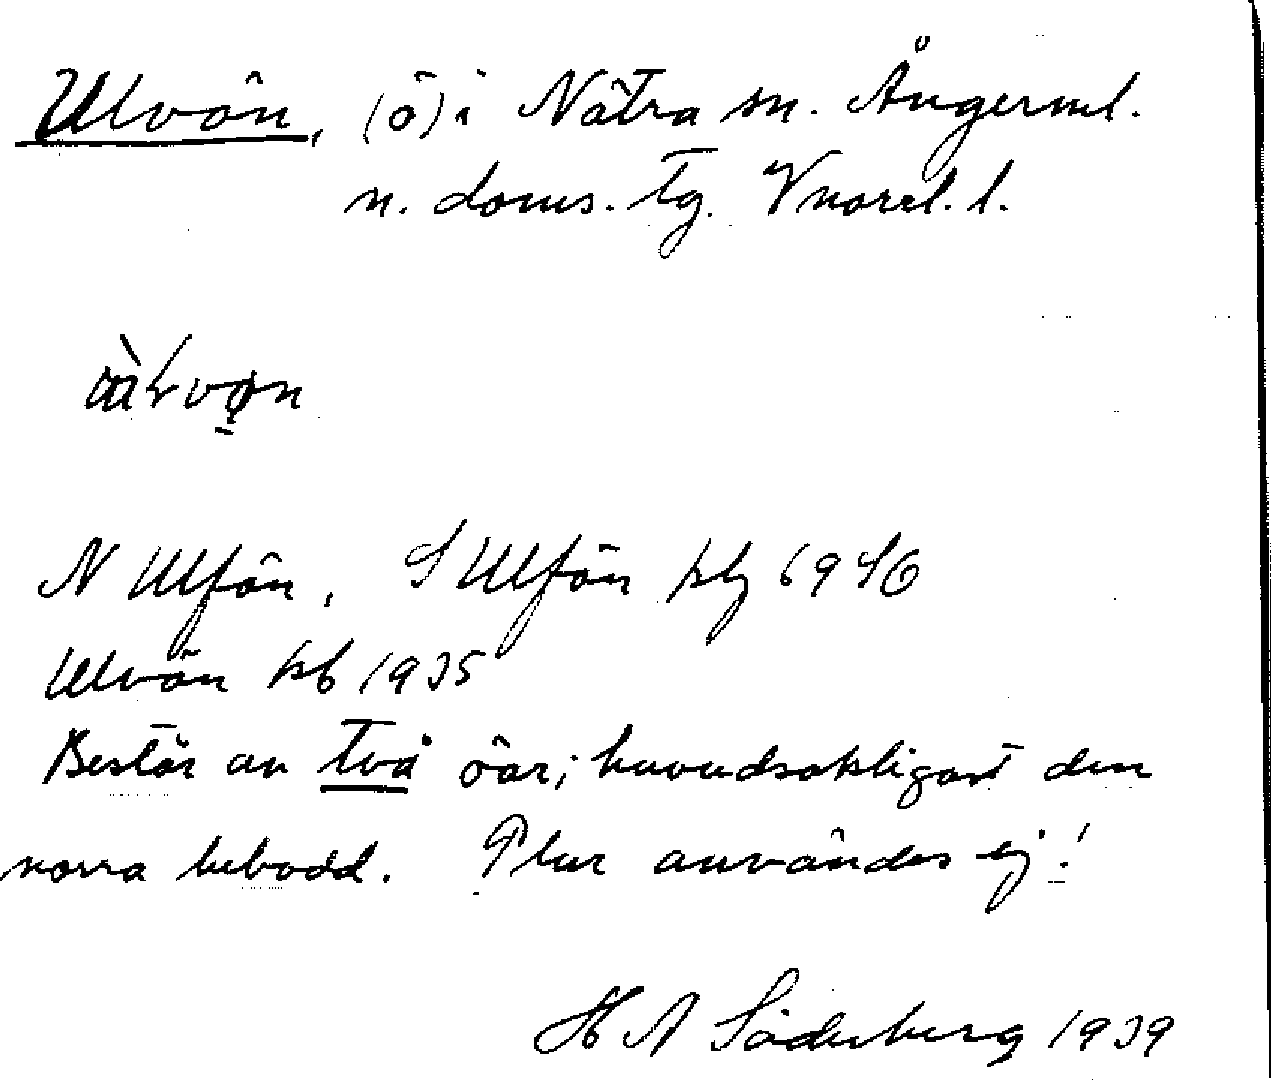 Ulvön, (ö) i Nätra sn. Ångerml.
n. doms. tg. Vnorrl. l.
N Ulfön, S Ulfön jrb 6946
Ulvön jrb 1935
Består av två öar; huvudsakligast den
norra bebodd. Plur användes ej!
H A Söderberg 1939